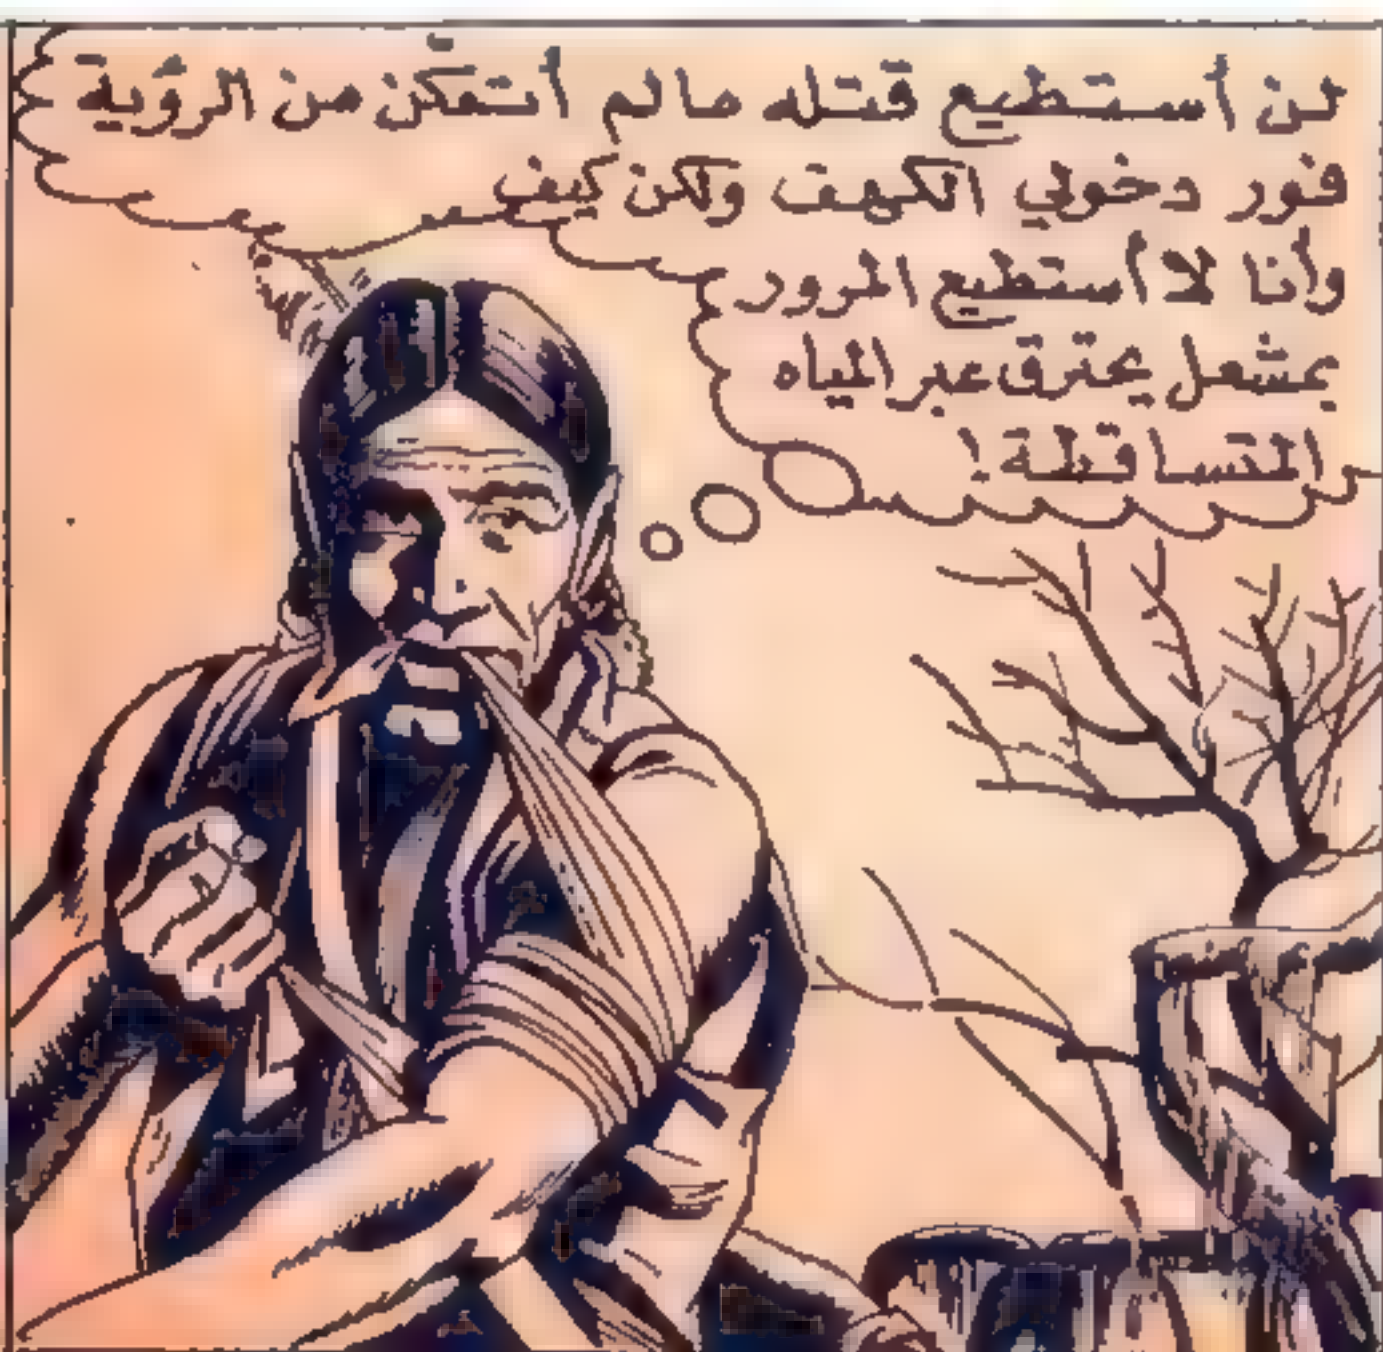 لن أستطيع قتله مالم أتمكّن من الرؤية
فور دخولي الكهف ولكن كيف
وأنا لا أستطيع المرور
بمشعل يحترق عبر المياه
المتساقطة!